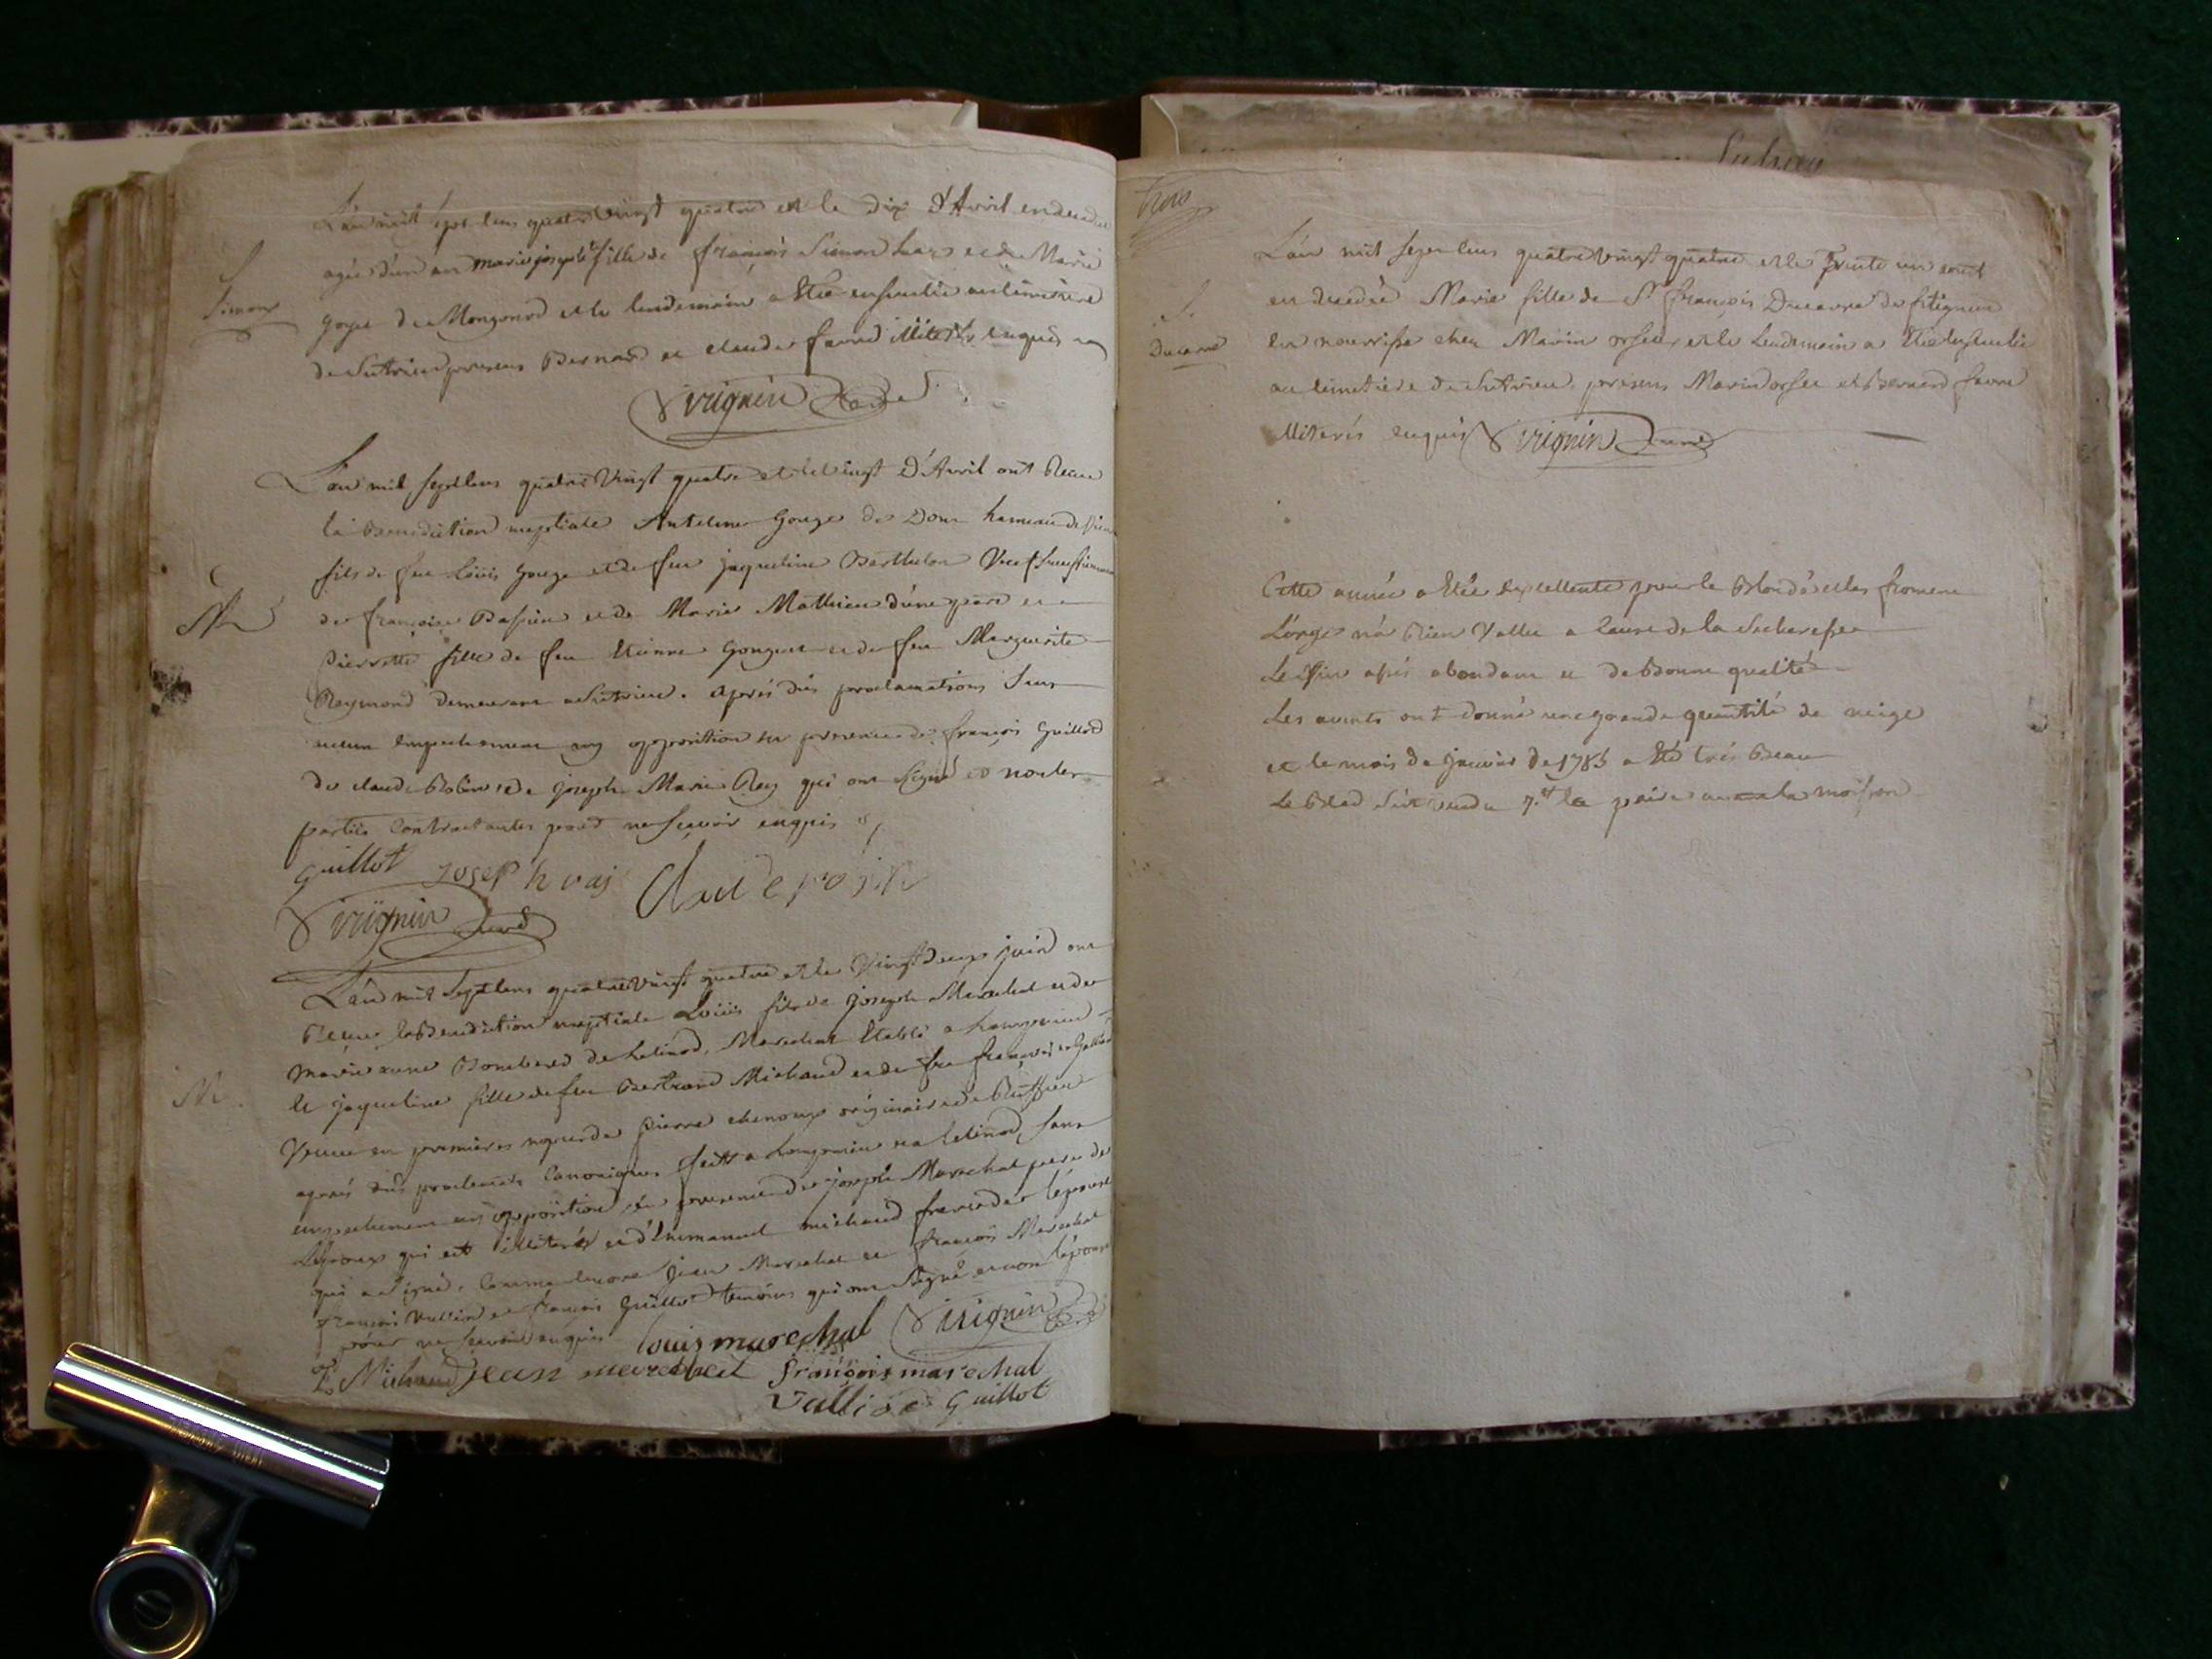 L'an mil sept cens quatre vingt quatre et le dix d'Avril en decedee
agée d'un an marie josephte fille de françois Simon et de Marie
Goyet de Mongonod et le lendemain a Eté ensevelie au cimetiere
de presens Bernard et claude favre illiterés enquis
S.
Simon
Virignin Curé
L'an mil sept cens quatre Vingt quatre et le vingt d'Avril ont Recu
la Benediction nuptiale Antelme Gouge de Don hameau de
fils de feu Loüis Gouge et de feu jaqueline Berthelon Veuf
de françoise Passieu et de Marie Mathieu d'une part et
M
pierrette fille de feu Etienne Gonguet et de feu Marguerite
Reymond demeurant a Sutrieu. Aprés dûs proclamations Sans
aucun Empechement ny opposition en presence de françois Guillot
de claude Robin et de joseph Marie Rey qui ont Signé et non les
parties Contractantes pour ne sçavoir enquis
Guillot joseph raj Claude robin
Virignin Curé
L'an mil sept cens quatre vingt quatre et le Vingt deux juin ont
Recu la Benediction nuptiale Loüis fils de joseph Marechal et de
marie anne Bombered de Lalinod, Marechal Etabli a
M.
et jaqueline fille de feu Bertrand Michaud et de feu françoise
Veuve en premieres noces de pierre originaire de Ruffieu
aprés dûs proclamats Canoniques faits a et a Lalinod, sans
empechement ny opposition, en presence de joseph Marechal pere de
L'epoux qui est illiteré et d'Emmanuel michaud frere de l'épouse
qui a Signé. Comme encore jean Marechal et françois Marechal
françois Vullin et françois Guillot temoins qui ont Signé et non l'épouse
pour ne sçavoir enquis louis marechal Virignin Curé
E Michaud jean marechal françois marechal
Guillot
trois
L'an mil sept cens quatre vingt quatre et le Trente un aout
S.
Ducarre
en decedée Marie fille de Sr françois Ducarre de fitignieu
en nourrisse chez Marin orsel, et le Lendemain a Eté Ensevelie
au cimetiere de Sutrieu, presens Marin orsel et Bernard favre
illiterés enquis Virignin Curé
Cette année a Eté Excellente pour le Blond et les froment
L'orge n'a Rien Vallu a Cause de la Secheresse
Le Vin assés abondant et de Bonne qualité
Les avents ont donné une grande quantité de neige
et le mois de janvier de 1785 a Eté trés Beau
Le Bled Seit vendu 7.lt la paire la moisson